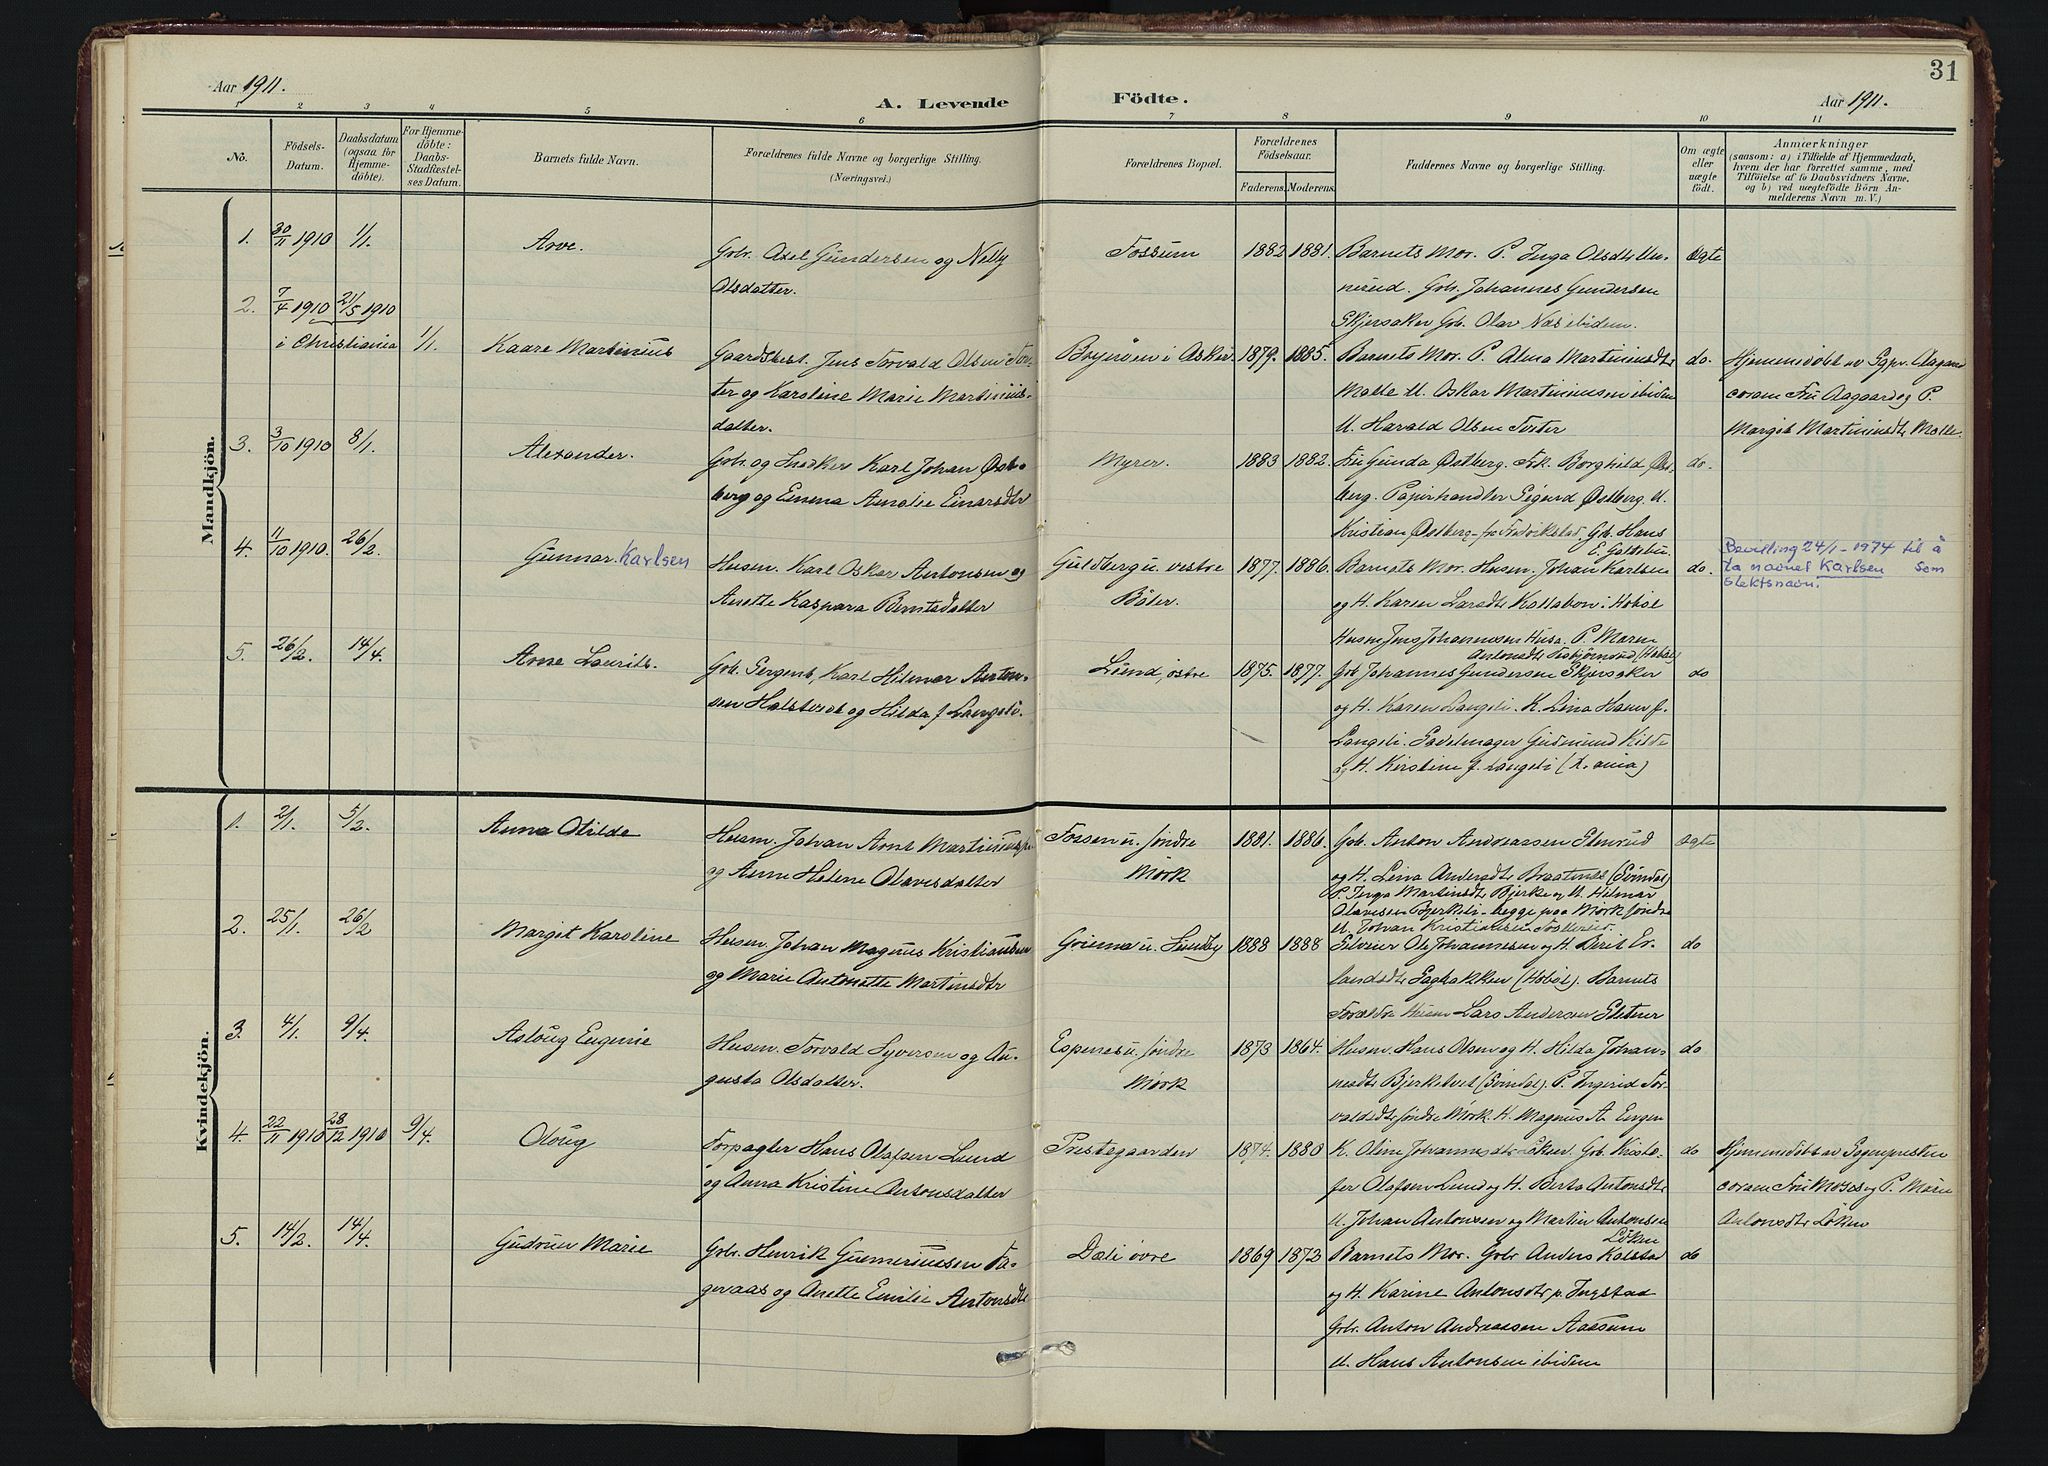 31
Aar 1911.
A. Levende Födte.
Aar 1911.
1 2 3 4 5 6 7 8 9 10 11
No.
Födsels-
Datum.
Daabsdatum
(ogsaa for
Hjemme-
döbte).
For Hjemme-
döbte:
Daabs-
Stadfæstel-
ses Datum.
Barnets fulde Navn.
Forældrenes fulde Navne og borgerlige Stilling.
(Næringsvei.)
Forældrenes Bopæl.
Forældrenes
Födselsaar.
Faderens.
Moderens.
Faddernes Navne og borgerlige Stilling.
Om ægte
eller
uægte
födt.
Anmærkninger
(saasom: a) i Tilfælde af Hjemmedaab,
hvem der har forrettet samme, med
Tilföielse af to Daabsvidners Navne.
og b) ved uægtefödte Börn An-
melderens Navn m. V.)
Mandkjön.
1. 30/11 1910 1/1. Arve.
Gbr. Axel Gundersen og Nelly
Olsdatter.
Fossum 1882 1881.
Barnets Mor. P. Inga Olsdtr
Gbr. Johannes Gundersen
Skjersaker Gbr. Olav Næs ibidem.
ægte
2. 7/4 1910 21/5 1910
i Christiania 1/1. Kaare Martinius
Gaardsbest. Jens Torvald Olsen
ter og Karoline Marie Martinius-
datter.
i Asker 1879. 1885.
Barnets Mor. P. Alma Martiniusdtr
Molle U. Oskar Martiniussen ibidem
U. Harald Olsen Torter
do.
Hjemmedöbt av Sgpr. Aagaard
coram Fru Aagaard og P.
Margit Martiniusdtr Molle.
3. 3/10 1910 8/1. Alexander.
Gbr. og Snedker Karl Johan Øst-
berg og Emma Amalie Einarsdtr
Myrer. 1883 1882.
Fru Gunda Østberg. Frk. Borghild Øst-
berg. Papirhandler Sigurd Østberg. U.
Kristian Østberg - fra Fredrikstad. Gb. Hans
E.
do.
4. 11/10 1910. 26/2. Gunnar Karlsen
Husm. Karl Oskar Antonsen og
Anette Kaspara Berntsdatter
Guldberg u. vestre
Bøler.
1877. 1886.
Barnets Mor. Husm. Johan Karlsen
og H. Karen Larsdtr Kollabon i Hobøl
Husm Jens Johannessen Husa. P. Maren
Antonsdtr Torbjørnrud (Hobøl)
do.
Bevilling 24/1-1974 til å
ta navnet Karlsen som
slektsnavn.
5. 26/2. 14/4. Arne Laurits.
Gbr. Sergent, Karl Hilmar Anton-
sen Halstvedt og Hilda f. Langeli.
Lund, østre 1875. 1877.
Gbr Johannes Gundersen Skjersaker
og H. Karen Langeli. K. Lina Hauer f.
Langeli. Sadelmager Gudmund Kilde
og H. Kirstine f. Langeli (X.ania)
do
Kvindekjön.
1. 2/1. 5/2. Anna Otilde
Husm. Johan Arnt Martiniussen
og Anne Helene Olavesdatter
Fossen u. søndre
Mørk
1881. 1886.
Gbr. Anton Andreassen Stenrud
og H. Lina Andersdtr Braatenes (Svindal)
P. Inga Martinsdtr Bjerke og U. Hilmar
Olavesen Bjerkeli - begge paa Mørk søndre
U. Johan Kristiansen
ægte
2. 25/1. 26/2 Margit Karoline
Husm. Johan Magnus Kristiansen
og Marie Antonette Martinsdtr
Grimma u. Sundby 1888 1888
Ole Johannesen og H. Berit Er-
landsdtr Sagbakken (Hobøl). Barnets
Forældre Husm Lars Andersen
do
3. 4/1. 9/4. Aslaug Eugenie
Husm. Torvald Syversen og Au-
gusta Olsdatter.
Espenes u. søndre
Mørk
1873 1864.
Husm. Hans Olsen og H. Hilda Johan-
nesdtr Bjerketvet (Svindal). P. Ingerid Tor-
valdsdtr søndre Mørk. K. Magnus A. Evgen
do
4. 22/11 1910 28/12 1910 9/4. Olaug
Forpagter Hans Olafsen Lund
og Anna Kristine Antonsdatter
Prestegaarden 1874. 1880
K. Oline Johannesdtr Løken. Gbr. Kristo-
fer Olafsen Lund og H. Berta Antonsdtr
U. Johan Antonsen og Martin Antonsen
Løken
do
Hjemmedöbt av Sognepresten
coram Fru Moses og P. Marie
Antonsdtr Løken
5. 14/2. 14/4. Gudrun Marie
Gbr. Henrik Gunneriussen Fa-
geraas og Anette Emilie Antonsdtr
Dæli øvre 1869 1873
Barnets Mor. Gbr. Anders Kolstad
og H. Karine Antonsdtr p. Ingstad
Gbr. Anton Andreassen Aassum
U. Hans Antonsen ibidem
do